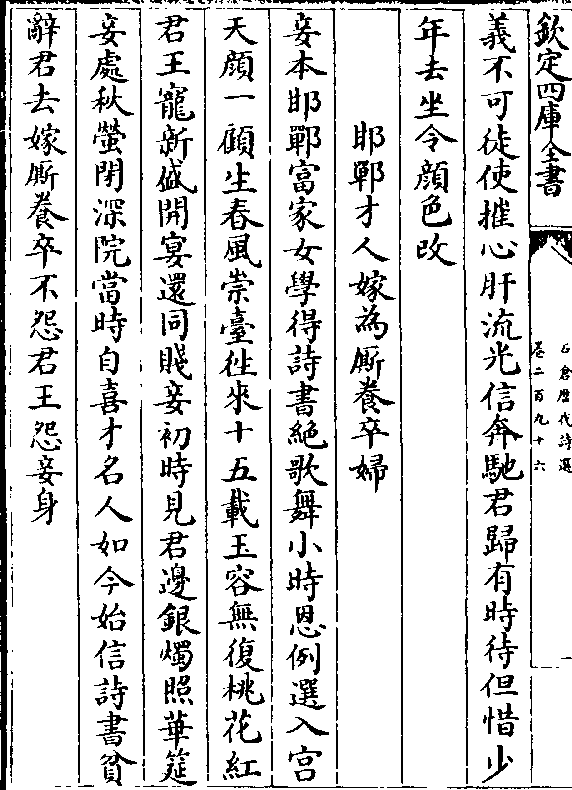 欽定四庫全書
石倉歷代詩選
卷二百九十六
一
義不可徒使摧心肝流光信奔馳君歸有時待但惜少
年去坐令顔色改
邯鄲才人嫁為厮養卒婦
妾本邯鄲富家女學得詩書絶歌舞小時恩例選入宫
天顔一顧生春風崇臺徃來十五載玉容無復桃花紅
君王寵新盛開宴還同賤妾初時見君邊銀燭照華筵
妾處秋螢閉深院當時自喜才名人如今始信詩書貧
辭君去嫁厮養卒不怨君王怨妾身